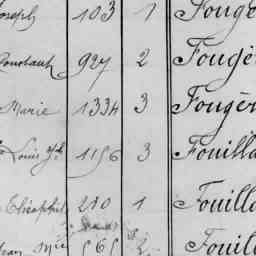 Joseph 103 1 Fougè
Constant 927 2 Fougè
Marie 1334 3 Fougèr
Louis 1156 3 Fouilla
210 1 Fouillo
565 2 Fouillo